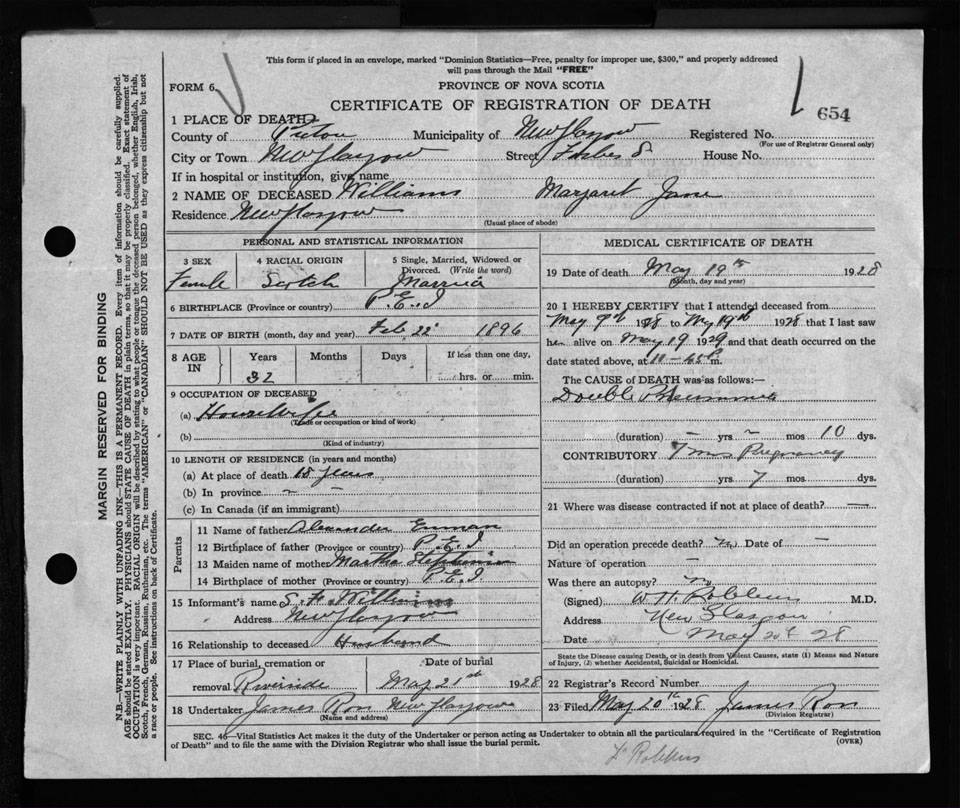 This form if placed in an envelope, marked "Dominion Statistics—Free, penalty for improper use, $300," and properly addressed
will pass through the Mail "FREE"
FORM 6.
PROVINCE OF NOVA SCOTIA
CERTIFICATE OF REGISTRATION OF DEATH
654
1 PLACE OF DEATH
County of Pictou Municipality of New Glasgow Registered No.
(For use of Registrar General only)
City or Town New Glasgow Street Forbes S House No.
If in hospital or institution, give name
2 NAME OF DECEASED Williams Margaret Jane
Residence New Glasgow
(Usual place of abode)
PERSONAL AND STATISTICAL INFORMATION
3 SEX 4 RACIAL ORIGIN 5 Single, Married, Widowed or
Divorced. (Write the word)
Female Scotch Married
6 BIRTHPLACE (Province or country) P.E.I
7 DATE OF BIRTH (month, day and year) Feb 22 1896
8 AGE IN Years Months Days If less than one day,
32 hrs. or min.
9 OCCUPATION OF DECEASED
(a) Housewife
(Trade or occupation or kind of work)
(b)
(Kind of industry)
10 LENGTH OF RESIDENCE (in years and months)
(a) At place of death years
(b) In province – –
(c) In Canada (if an immigrant)
Parents
11 Name of father Alexander Enman
12 Birthplace of father (Province or country) P.E.I
13 Maiden name of mother Martha
14 Birthplace of mother (Province or country) P.E.I
15 Informant's name Williams
Address New Glasgow
16 Relationship to deceased Husband
17 Place of burial, cremation or Date of burial
removal Riverside May 21st 1928
18 Undertaker James Ross New Glasgow
(Name and address)
MEDICAL CERTIFICATE OF DEATH
19 Date of death May 19th 1928
(Month, day and year)
20 I HEREBY CERTIFY that I attended deceased from
May 9th 1928 to My 19th 1928 that I last saw
her alive on May 19 1929 and that death occurred on the
date stated above, at m.
The CAUSE of DEATH was as follows:—
Double Pneumonia
(duration) – yrs – mos 10 dys.
CONTRIBUTORY 7 mos Pregnancy
(duration) yrs 7 mos dys.
21 Where was disease contracted if not at place of death? —
Did an operation precede death? no Date of –
Nature of operation –
Was there an autopsy? no
(Signed) W H Robbins M.D.
Address New Glasgow
Date May 20th 28
State the Disease causing Death, or in death from Violent Causes, state (1) Means and Nature
of Injury, (2) whether Accidental, Suicidal or Homicidal.
22 Registrar's Record Number
23 Filed May 20th 1928 James Ross
(Division Registrar)
SEC. 46—Vital Statistics Act makes it the duty of the Undertaker or person acting as Undertaker to obtain all the particulars required in the "Certificate of Registration
of Death" and to file the same with the Division Registrar who shall issue the burial permit.
(OVER)
Dr Robbins
MARGIN RESERVED FOR BINDING
N.B.—WRITE PLAINLY WITH UNFADING INK—THIS IS A PERMANENT RECORD. Every item of information should be carefully supplied.
AGE should be stated EXACTLY. PHYSICIANS should STATE CAUSE OF DEATH in plain terms, so that it may be properly classified. Exact statement of
OCCUPATION is very important. RACIAL ORIGIN will be described by stating to what people or tongue the deceased person belonged, whether English, Irish,
Scotch, French, German, Russian, Ruthenian, etc. The terms "AMERICAN" or "CANADIAN" SHOULD NOT BE USED as they express citizenship but not
a race or people. See instructions on back of Certificate.